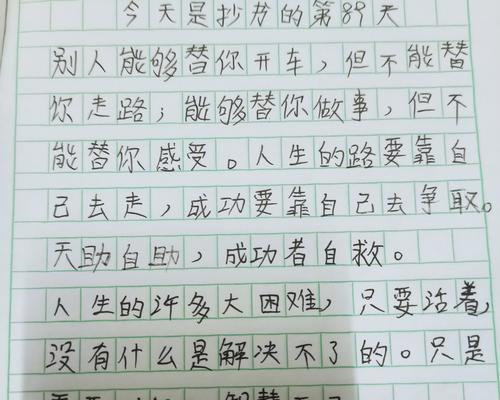 今天是抄书的第89天
别人能够替你开车，但不能替
你走路；能够替你做事，但不
能替你感受。人生的路要靠自
己去走，成功要靠自己去争取。
天助自助，成功者自救。
人生的许多大困难，只要活着，
没有什么是解决不了的。只是